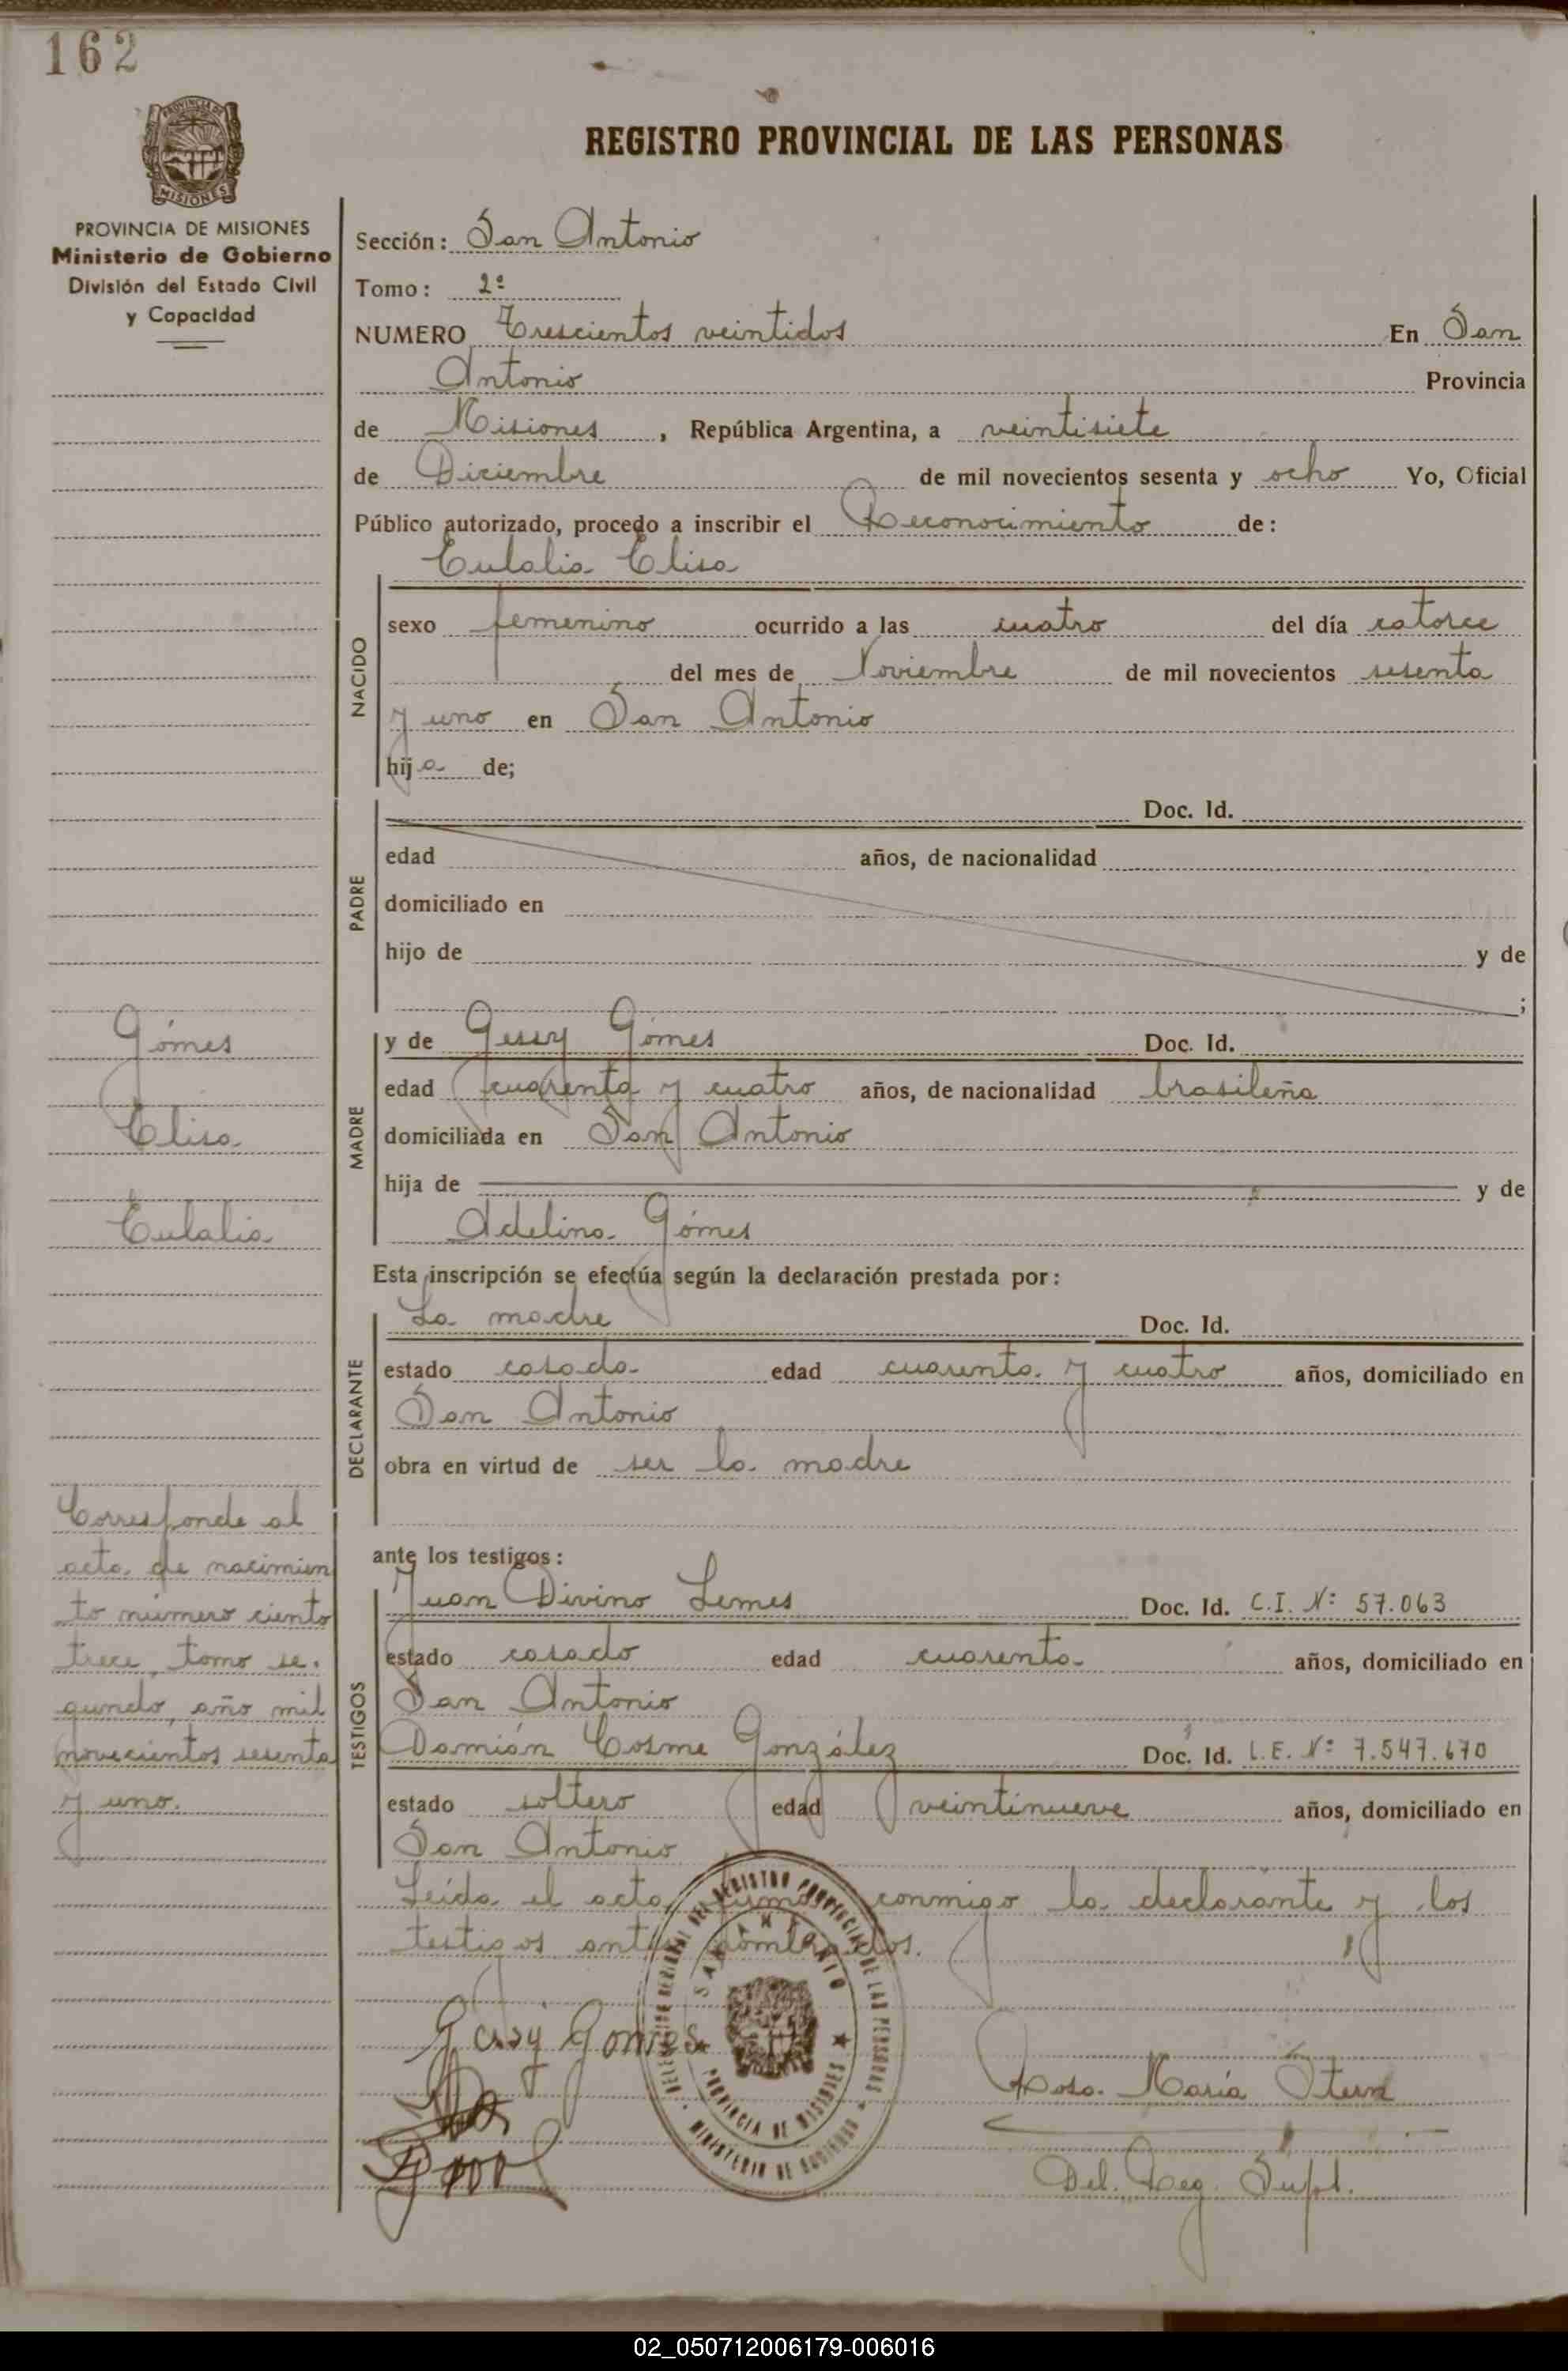 162
PROVINCIA DE MISIONES
Ministerio de Gobierno
División del Estado Civil
y Capacidad
REGISTRO PROVINCIAL DE LAS PERSONAS
Sección: San Antonio
Tomo: 2º
NUMERO Trescientos veintidos En San
Antonio Provincia
de Misiones, República Argentina, a veintisiete
de Diciembre de mil novecientos sesenta y ocho Yo, Oficial
Público autorizado, procedo a inscribir el Reconocimiento de:
Eulalia Elisa
NACIDO
sexo femenino ocurrido a las cuatro del día catorce
del mes de Noviembre de mil novecientos sesenta
y uno en San Antonio
hija de;
PADRE
Doc. Id.
edad años, de nacionalidad
domiciliado en
hijo de y de
;
MADRE
y de Gessy Gómes Doc. Id.
edad cuarenta y cuatro años, de nacionalidad brasileña
domiciliada en San Antonio
hija de y de
Adelina Gómes
Gómes
Elisa
Eulalia
Esta inscripción se efectúa según la declaración prestada por:
DECLARANTE
La madre Doc. Id.
estado casada edad cuarenta y cuatro años, domiciliado en
San Antonio
obra en virtud de ser la madre
ante los testigos:
TESTIGOS
Juan Divino Lemes Doc. Id. C.I. Nº 57.063
estado casado edad cuarenta años, domiciliado en
San Antonio
Damián Cosme González Doc. Id. L.E. Nº 7.547.670
estado soltero edad veintinueve años, domiciliado en
San Antonio
Corresponde al
acta de nacimien
to número ciento
trece, tomo se.
gundo, año mil
novecientos sesenta
y uno.
Leída el acta, firman conmigo la declarante y los
testigos antes nombrados.
DELEGACION REGIONAL DEL REGISTRO PROVINCIAL DE LAS PERSONAS
SAN ANTONIO
PROVINCIA DE MISIONES
MINISTERIO DE GOBIERNO
Gessy Gomes
Rosa María Stern
Del. Reg. Supl.
02_050712006179-006016